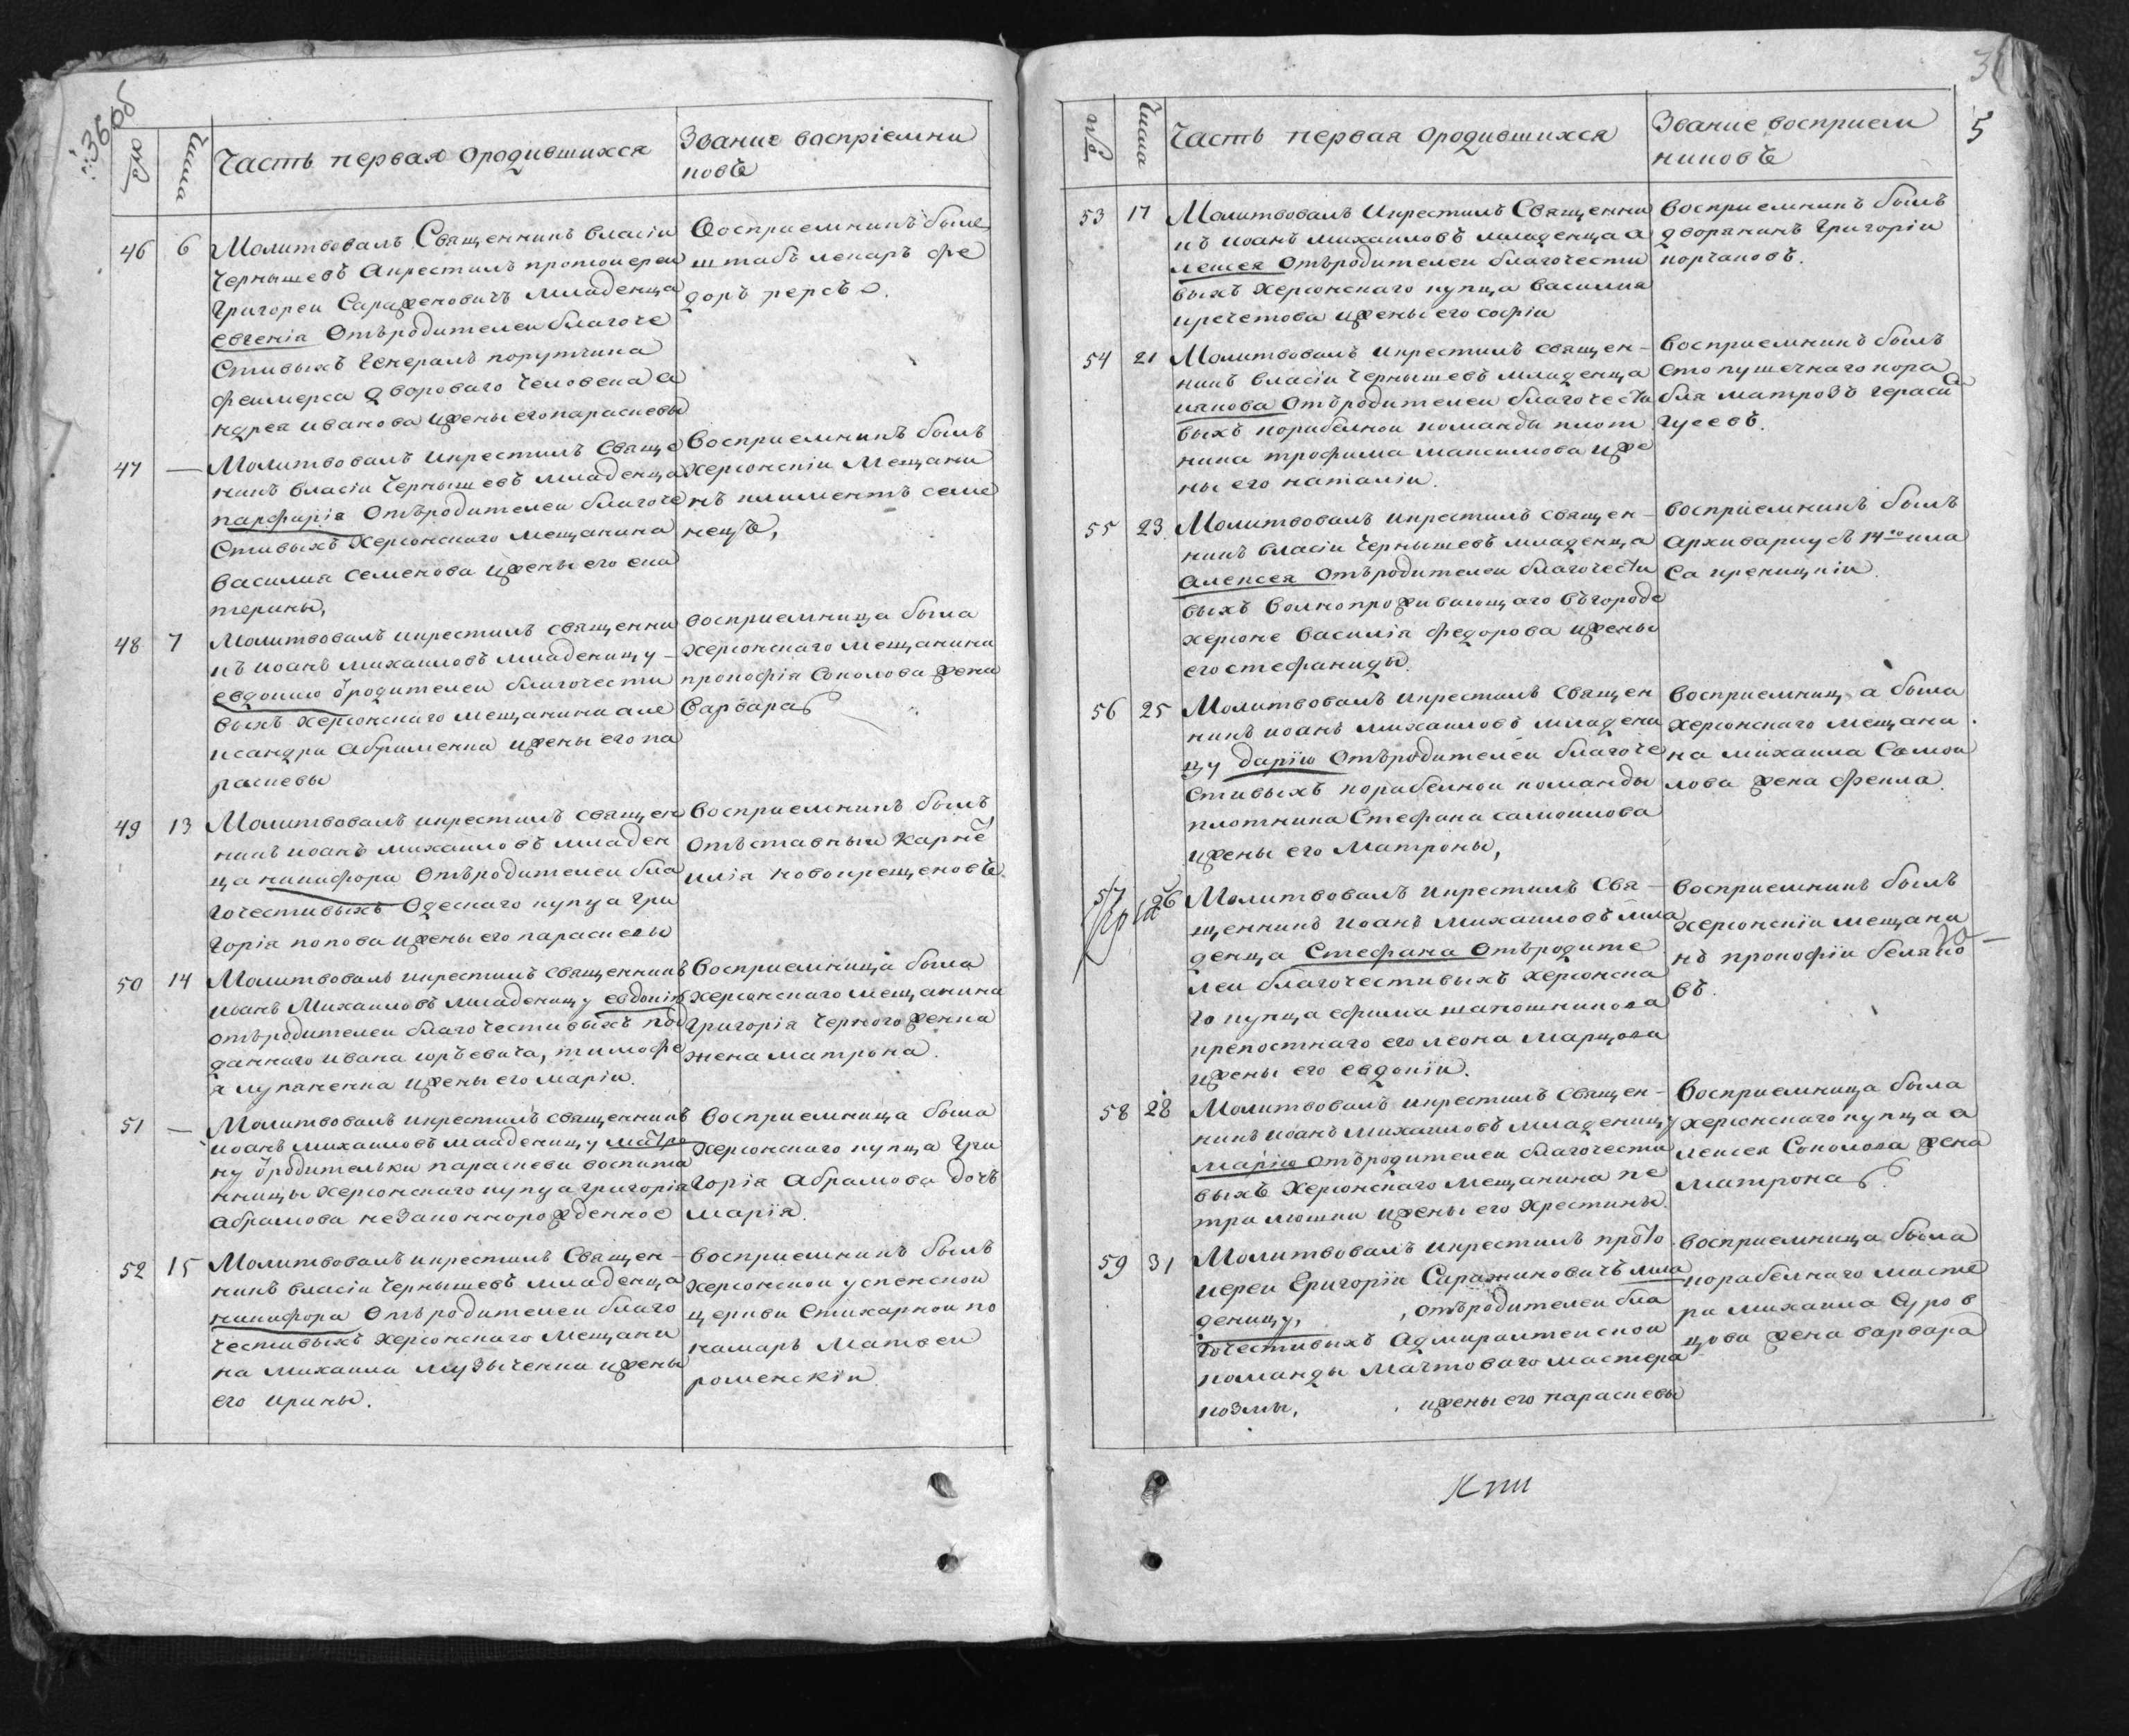 36 об
№
Числа
Часть первая ородившихся
Звание воспріемни
ковъ
46 6 Молитвовалъ Священникъ власіи
Чернышевъ Акрестилъ протоиереи
Григореи Сарафеновичъ Младенца
евгенія Отъродителеи благоче
Стивыхъ Генералъ порутчика
феншерса Двороваго Человека а
ндрея иванова ижены его параскевы
Восприемникъ былъ
штабъ лекаръ фе
доръ
47 — Молитвовалъ икрестилъ Свяще
никъ власіи Чернышевъ младенца
парфирія Отъродителеи благоче
Стивыхъ Херсонскаго мещанина
василия семенова ижены его ека
терины,
Восприемникъ былъ
Херсонскіи Мещани
нъ климентъ семе
нецъ,
48 7 Молитвовалъ икрестилъ священни
къ иоанъ михаиловъ младеницу
евдокию ѿродителеи благочести
выхъ херсонскаго мещанина але
ксандра Абраменка ижены его па
раскевы
восприемница была
херсонскаго мещанина
прокофія Соколова жена
варвара
49 13 Молитвовалъ икрестилъ священ
никъ иоанъ михаиловъ младен
ца никифора Отъродителеи бла
гочестивыхъ Одескаго купца гри
горія попова ижены его параскевы
Восприемникъ былъ
Отъставныи карнѣ
илія новокрещеновъ
50 14 Молитвовалъ икрестилъ священникъ
иоанъ Михаиловъ младеницу евдокію
отъродителеи благочестивыхъ под
даннаго ивана юръевича, тимофе
я лупаненка ижены его маріи.
Восприемница была
Херсонскаго мещанина
григорія черногоженка
жена матрона.
51 — Молитвовалъ икрестилъ священникъ
иоанъ михаиловъ младеницу матро
ну ѿродительки параскеви воспита
нницы херсонскаго купца григорія
абрамова незаконнорожденное
восприемница была
херсонского купца Гри
горія абрамова дочъ
марія.
52 15 Молитвовалъ икрестилъ Священ
никъ власіи Чернышевъ младенца
никифора Отъродителеи благо
честивыхъ херсонскаго Мещани
на михаила музыченки ижены
его ирины.
восприемникъ былъ
херсонскои успенскои
церкви Стихарнои по
намаръ Матвеи
роменскіи
5
№
Числа
Часть первая ородившихся
Звание восприем
никовъ
53 17 Молитвовалъ Икрестилъ Священни
къ иоанъ михаиловъ младенца а
лексея Отъродителеи благочести
выхъ херсонскаго купца василия
кречетова ижены его софіи
восприемникъ былъ
дворянинъ Григоріи
корчановъ.
54 21 Молитвовалъ икрестилъ священ
никъ власіи чернышевъ младенца
иякова Отъродителеи благочести
выхъ корабелнои команды плот
ника трофима максимова иже
ны его наталіи.
восприемникъ былъ
сто пушечнаго кора
бля матрозъ гераси
гусевъ.
55 23 Молитвовалъ икрестилъ священ
никъ власіи чернышевъ младенца
алексея отъродителеи благочести
выхъ волнопроживающаго въгороде
херсоне василія федорова ижены
его стефаниды.
восприемникъ былъ
архивариусъ 14го кла
са креницкіи.
56 25 Молитвовалъ икрестилъ священ
никъ иоанъ михаиловъ младени
цу дарію Отъродителеи благоче
стивыхъ корабелнои команды
плотника Стефана самоилова
ижены его Матроны,
восприемница была
херсонскаго мещани
на михаила Самои
лова жена фекла.
57 26 Молитвовалъ икрестилъ Свя
щенникъ иоанъ михаиловъ мла
денца Стефана Отъродите
леи благочестивыхъ херсонска
го купца ефима шапошникова
крепостнаго его леона марцова
ижены его евдокіи.
восприемникъ былъ
херсонскіи мещани
нъ прокофіи беляко
въ.
58 28 Молитвовалъ икрестилъ священ
никъ иоанъ михаиловъ младеницу
марію отъродителеи благочести
выхъ херсонскаго мещанина пе
тра люшни ижены его христины.
Восприемница была
херсонскаго купца а
лексея Соколова жена
матрона
59 31 Молитвовалъ икрестилъ прото
иереи Григоріи Сарафиновичъ мла
деницу, , отъродителеи бла
гочестивыхъ адмиралтеискои
команды мачтоваго мастера
козмы, , ижены его параскевы
восприемница была
корабелнаго масте
ра михаила суров
цова жена варвара